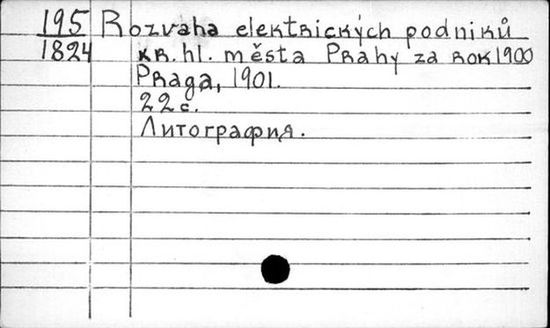 195 Rozvaha elektrických podniků
1824 kr. hl. města Prahy za rok 1900
Praga, 1901.
22 с.
Литография.